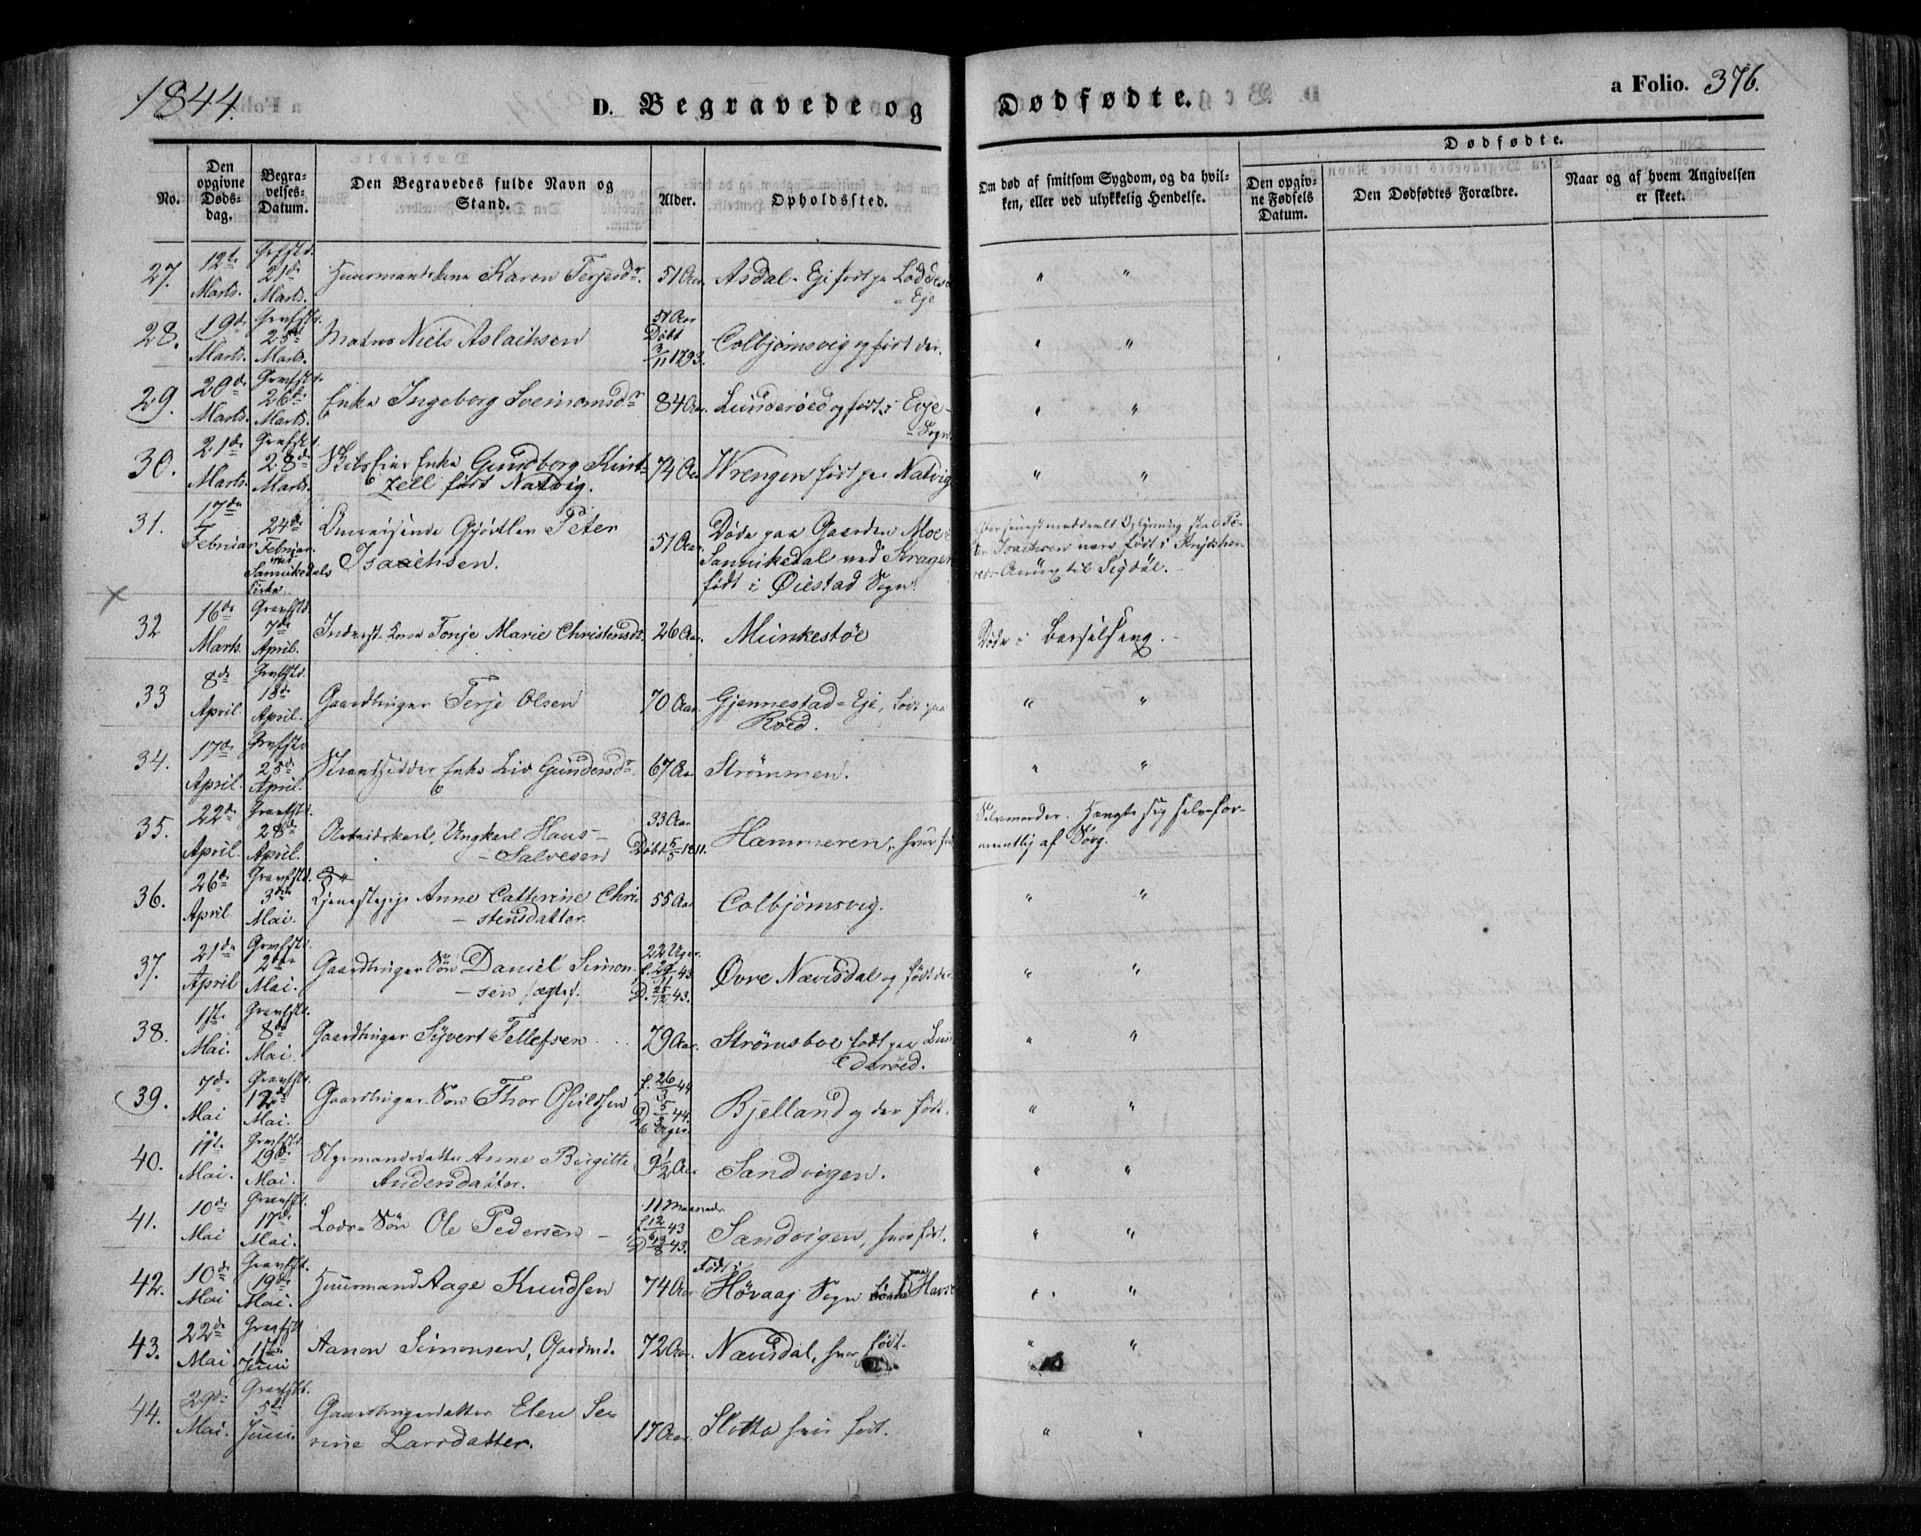 1844.
D. Begravede og Dødfødte.
a Folio. 376.
No.
Den opgivne Døds-dag.
Begra-velses-Datum.
Den Begravedes fulde Navn og Stand.
Alder.
Opholdssted.
Om død af smitsom Sygdom, og da hvil-ken, eller ved ulykkelig Hendelse.
Dødfødte.
Den opgiv-ne Fødsels Datum.
Den Dødfødtes Forældre.
Naar og af hvem Angivelsen er skeet.
27. 12te Marts. Grafsted. 21de Marts. Huusmandskone Karen Terjesdr. 51 Aar. Asdal-Eje født paa Løddesøl-Eje " "
28. 19de Marts. Grafsted. 25de Marts. Matros Niels Aslachsen 51 Aar Døbt 3/11 1793. Colbjørnsvig og født der. " "
29. 20de Marts. Grafsted. 26de Marts. Enke Ingeborg 84 Aar. Lunderøed og født i Evje-Sogn. " "
30. 21de Marts. Grafsted. 28de Marts. Skibseier Enke Gundborg Kint-zell født Natvig. 74 Aar Wrengen født paa Natvig " "
31. 17de Februar 24de Februar ved Sannikedals Kirke Omreisende Gjørtler Peter Isaachsen. 51 Aar. Døde paa Gaarden Moe i Sannikedal ved Kragerø født i Øiestad Sogn.
Isachsen være født i
Annex til Sigdal.
32 16de Marts. Gravsted. 7de April. Inderst-Kone Tonje Marie Christensdr. 26 Aar. Munkestøe Døde i Barselseng.
33 8de April Gravsted. 18de April. Gaardbruger Terje Olsen 70 Aar. Gjennestad-Eje, født paa Røed. " "
34. 17de April. Gravsted 25de April. Strandsidder Enke Liv Gundersdr. 67 Aar Strømmen. " "
35. 22de April. Gravsted. 28de April. Arbeidskarl, Ungkarl Hans Salvesen 33 Aar Døbt 5/5 1811. Hammeren, hvor født Selvmorder. Hængte sig selv for-mentlig af Sorg.
36. 26de April Gravsted. 3die Mai. Tjenestepige Anne Cathrine Chri-stensdatter. 55 Aar Colbjørnsvig. " "
37. 21de April Gravsted. 2den Mai. Gaardbruger Søn Daniel Simon-sen (ægte). 22 Uger. Øvre Nævisdal og født der " "
38. 1ste Mai. Gravsted. 8de Mai. Gaardbruger Syvert Tellefsen 79 Aar. Strømsboe født paa Lun-derøed. " "
39. 7de Mai Gravsted. 12de Mai. Gaardbruger Søn Thor Osuldsen f. 26/3 44 D. 5/5 44. 6 Uger Bjelland og der født. " "
40. 11te Mai. Gravsted 19de Mai. Styrmandsdatter Anne Birgitte Andersdatter. 9 1/2 Aar Sandvigen. " "
41. 10de Mai Gravsted. 17de Mai. Lods-Søn Ole Pedersen 11 Maaneder f. 12/6 43 D. 13/8 43. Sandvigen, hvor født. " "
42. 10de Mai Gravsted. 19de Mai. Huusmand Aage Knudsen 74 Aar Født i Høvaag Sogn paa " "
43. 22de Mai Gravsted 1ste Juni Aanon Simonsen, Gaardmd. 72 Aar. Nævisdal, hvor født. " "
44. 29de Mai. Gravsted. 5te Juni. Gaardbrugerdatter Elen Se-rine Larsdatter. 17 Aar. Slotta hvor født. " "